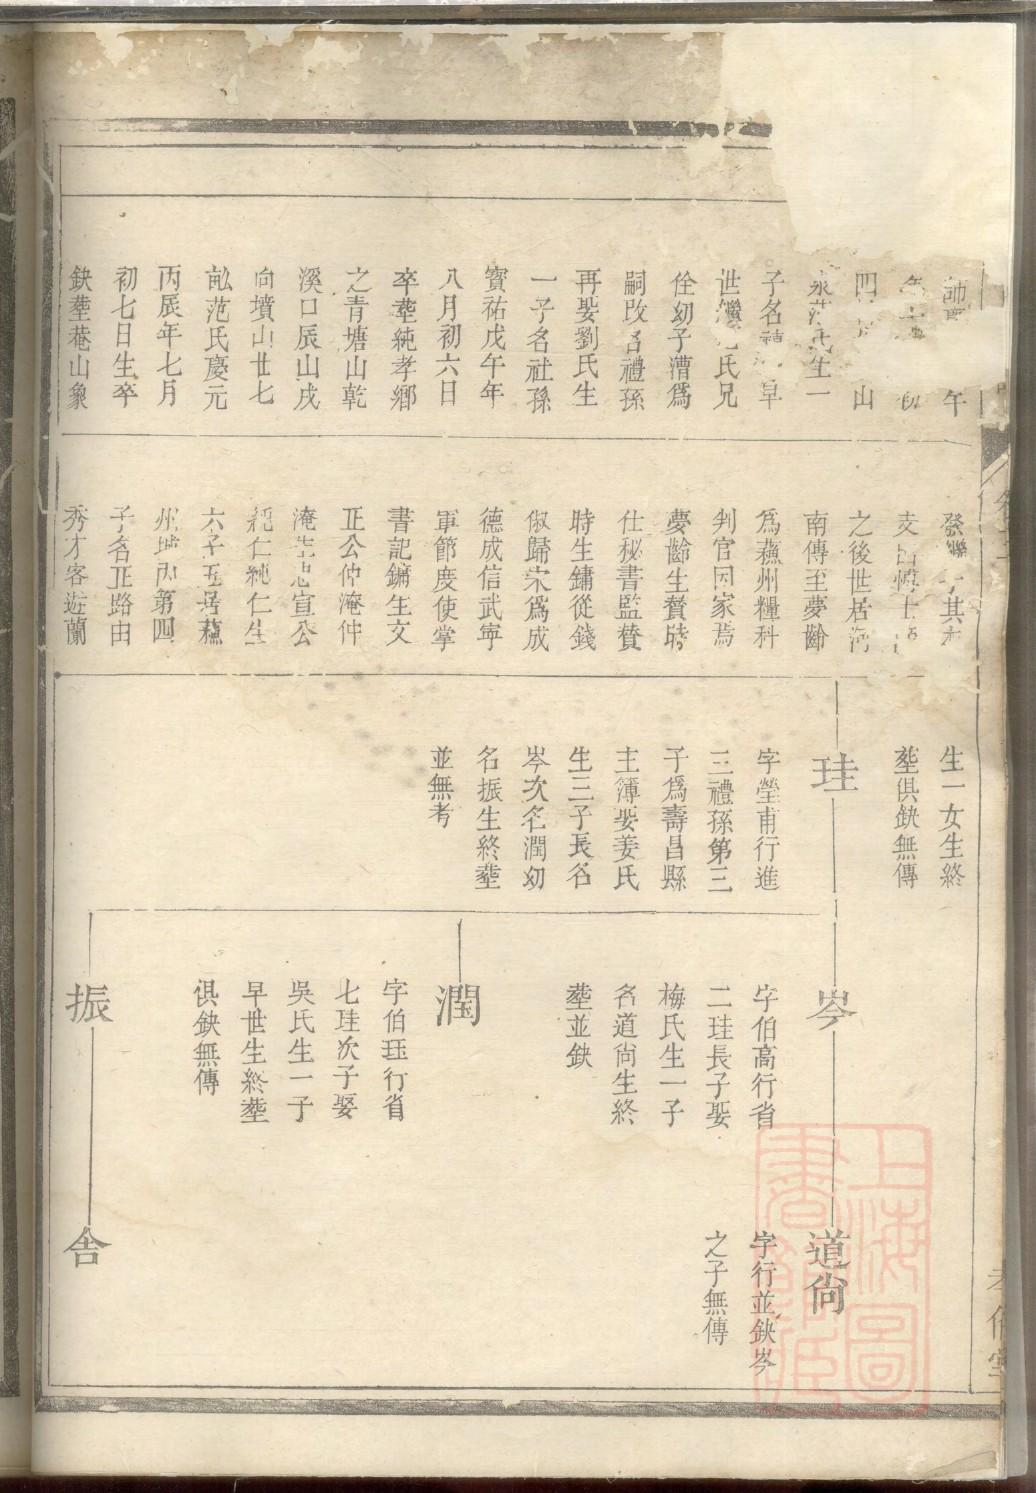 午
四 山
氏生一
子名 早
世 氏兄
佺幼子漕爲
嗣改名禮孫
再娶劉氏生
一子名社孫
寶祐戊午年
八月初六日
卒塟純孝鄉
之青塘山乾
溪口辰山戌
向墳山廿七
畝范氏慶元
丙辰年七月
初七日生卒
缺塟菴山象
其
之後世居
南傳至夢齡
爲蘓州糧科
判官因家焉
夢齡生賛時
仕秘書監賛
時生鏞從錢
俶歸宋爲成
德成信武寧
軍節度使掌
書記鏞生文
正公仲淹仲
淹生忠宣公
純仁純仁生
六子五居蘓
州城内第四
子名正路由
秀才客遊蘭
生一女生終
塟俱缺無傳
珪
字瑩甫行進
三禮孫第三
子爲壽昌縣
主簿娶姜氏
生三子長名
岑次名潤幼
名振生終塟
並無考
岑
字伯高行省
二珪長子娶
梅氏生一子
名道尙生終
塟並缺
潤
字伯珏行省
七珪次子娶
吳氏生一子
早世生終塟
俱缺無傳
振
道尙
字行並缺岑
之子無傳
舎
上海圖書館藏